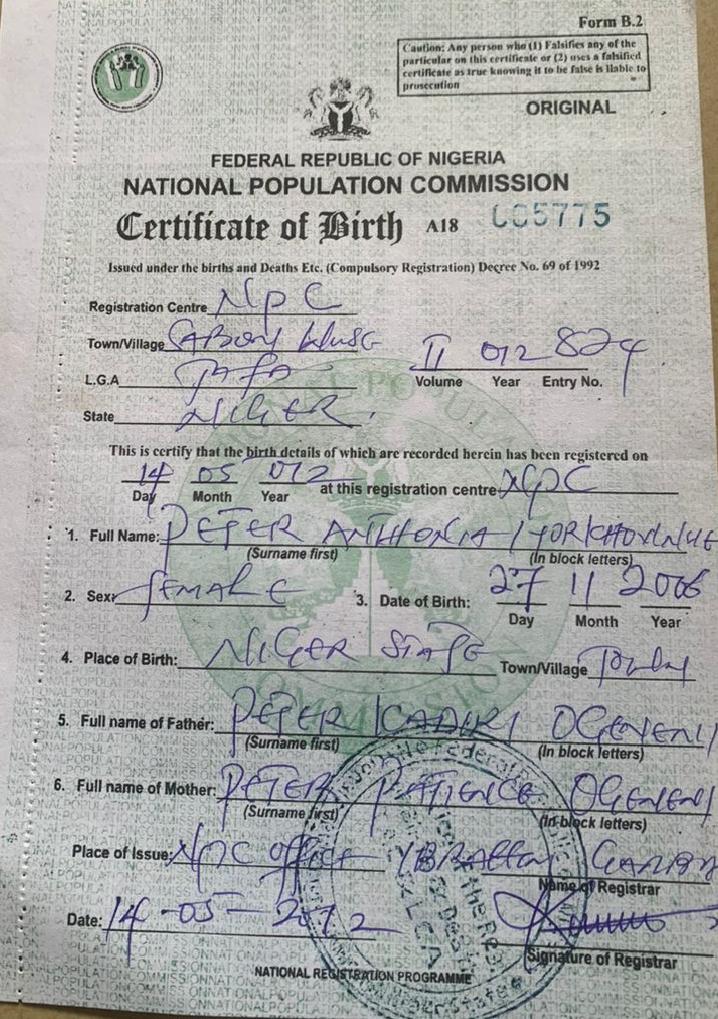 Form B.2
Caution: Any person who (1) Falsifies any of the
particular on this certificate or (2) uses a falsified
certificate as true knowing it to be false is liable to
prosecution
ORIGINAL
FEDERAL REPUBLIC OF NIGERIA
NATIONAL POPULATION COMMISSION
Certificate of Birth A18 005775
Issued under the births and Deaths Etc. (Compulsory Registration) Decree No. 69 of 1992
Registration Centre NPC
Town/Village SABON WUSE
II 012 824
L.G.A TAFA
Volume Year Entry No.
State NIGER
This is certify that the birth details of which are recorded herein has been registered on
14 05 012 at this registration centre NPC
Day Month Year
1. Full Name: PETER ANTHONIA
(Surname first) (In block letters)
2. Sex: FEMALE 3. Date of Birth: 27 11 2006
Day Month Year
4. Place of Birth: NIGER STATE Town/Village
5. Full name of Father: PETER KADIRI OGENENI
(Surname first) (In block letters)
6. Full name of Mother: PETER PATIENCE OGENENI
(Surname first) (In block letters)
Place of Issue: NPC office
Name of Registrar
Date: 14-05-2012
Signature of Registrar
NATIONAL REGISTRATION PROGRAMME